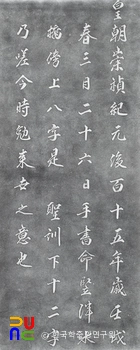 皇朝崇禎紀元後百十五年歲壬戌
春三月二十六日手書命竪泮水
橋傍上八字是 聖訓下十二字
乃嗟今時勉來世之意也
한국학중앙연구원